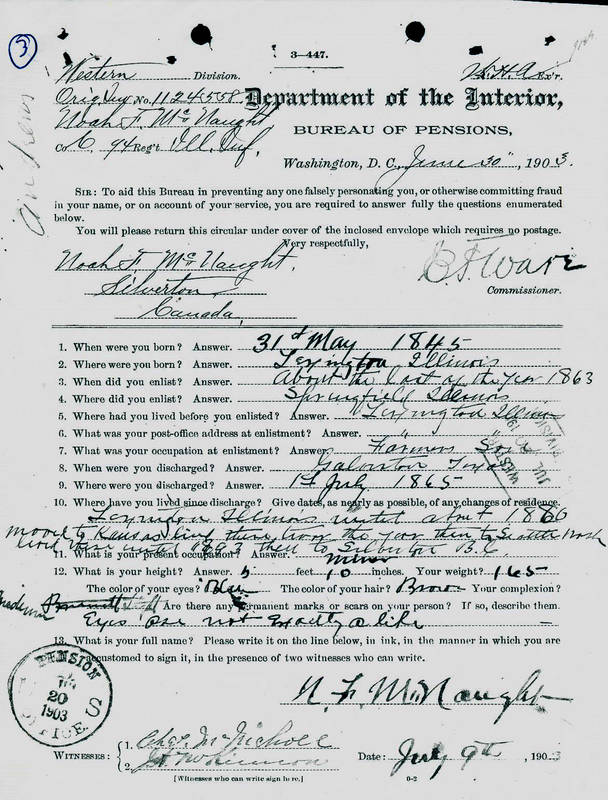 3
3—447.
Western Division.
W. H. A. Ex'r.
Orig Inv No. 1124558.
Department of the Interior,
Noah F. McNaught
BUREAU OF PENSIONS,
Co C. 94 Reg't Ill. Inf,
Washington, D. C., June 30", 1903.
Andrews
SIR: To aid this Bureau in preventing any one falsely personating you, or otherwise committing fraud
in your name, or on account of your service, you are required to answer fully the questions enumerated
below.
You will please return this circular under cover of the inclosed envelope which requires no postage.
Very respectfully,
Noah F. McNaught.
Silverton,
Canada,
Commissioner.
1. When were you born? Answer. 31st May 1845
2. Where were you born? Answer. Lexington Illinois
3. When did you enlist? Answer. About the last of the year 1863
4. Where did you enlist? Answer. Springfield Illinois
5. Where had you lived before you enlisted? Answer. Lexington Illinois
6. What was your post-office address at enlistment? Answer.
7. What was your occupation at enlistment? Answer. Farmers Son
8. When were you discharged? Answer. Galveston Texas
9. Where were you discharged? Answer. 1st July 1865
10. Where have you lived since discharge? Give dates, as nearly as possible, of any changes of residence.
Lexington Illinois until about
moved to Kansas then to Seattle Wash
lived there until then to Silverton B.C
11. What is your present occupation? Answer. Miner
12. What is your height? Answer. 5 feet 10 inches. Your weight? 165
The color of your eyes? Blue The color of your hair? Brown Your complexion?
Are there any permanent marks or scars on your person? If so, describe them.
Eyes are not exactly alike
13. What is your full name? Please write it on the line below, in ink, in the manner in which you are
accustomed to sign it, in the presence of two witnesses who can write.
N. F. McNaught
PENSION
20
1903
OFFICE
WITNESSES: 1. Chas. McNicholl
2.
Date: July 9th, 1903
[Witnesses who can write sign here.]
0-2